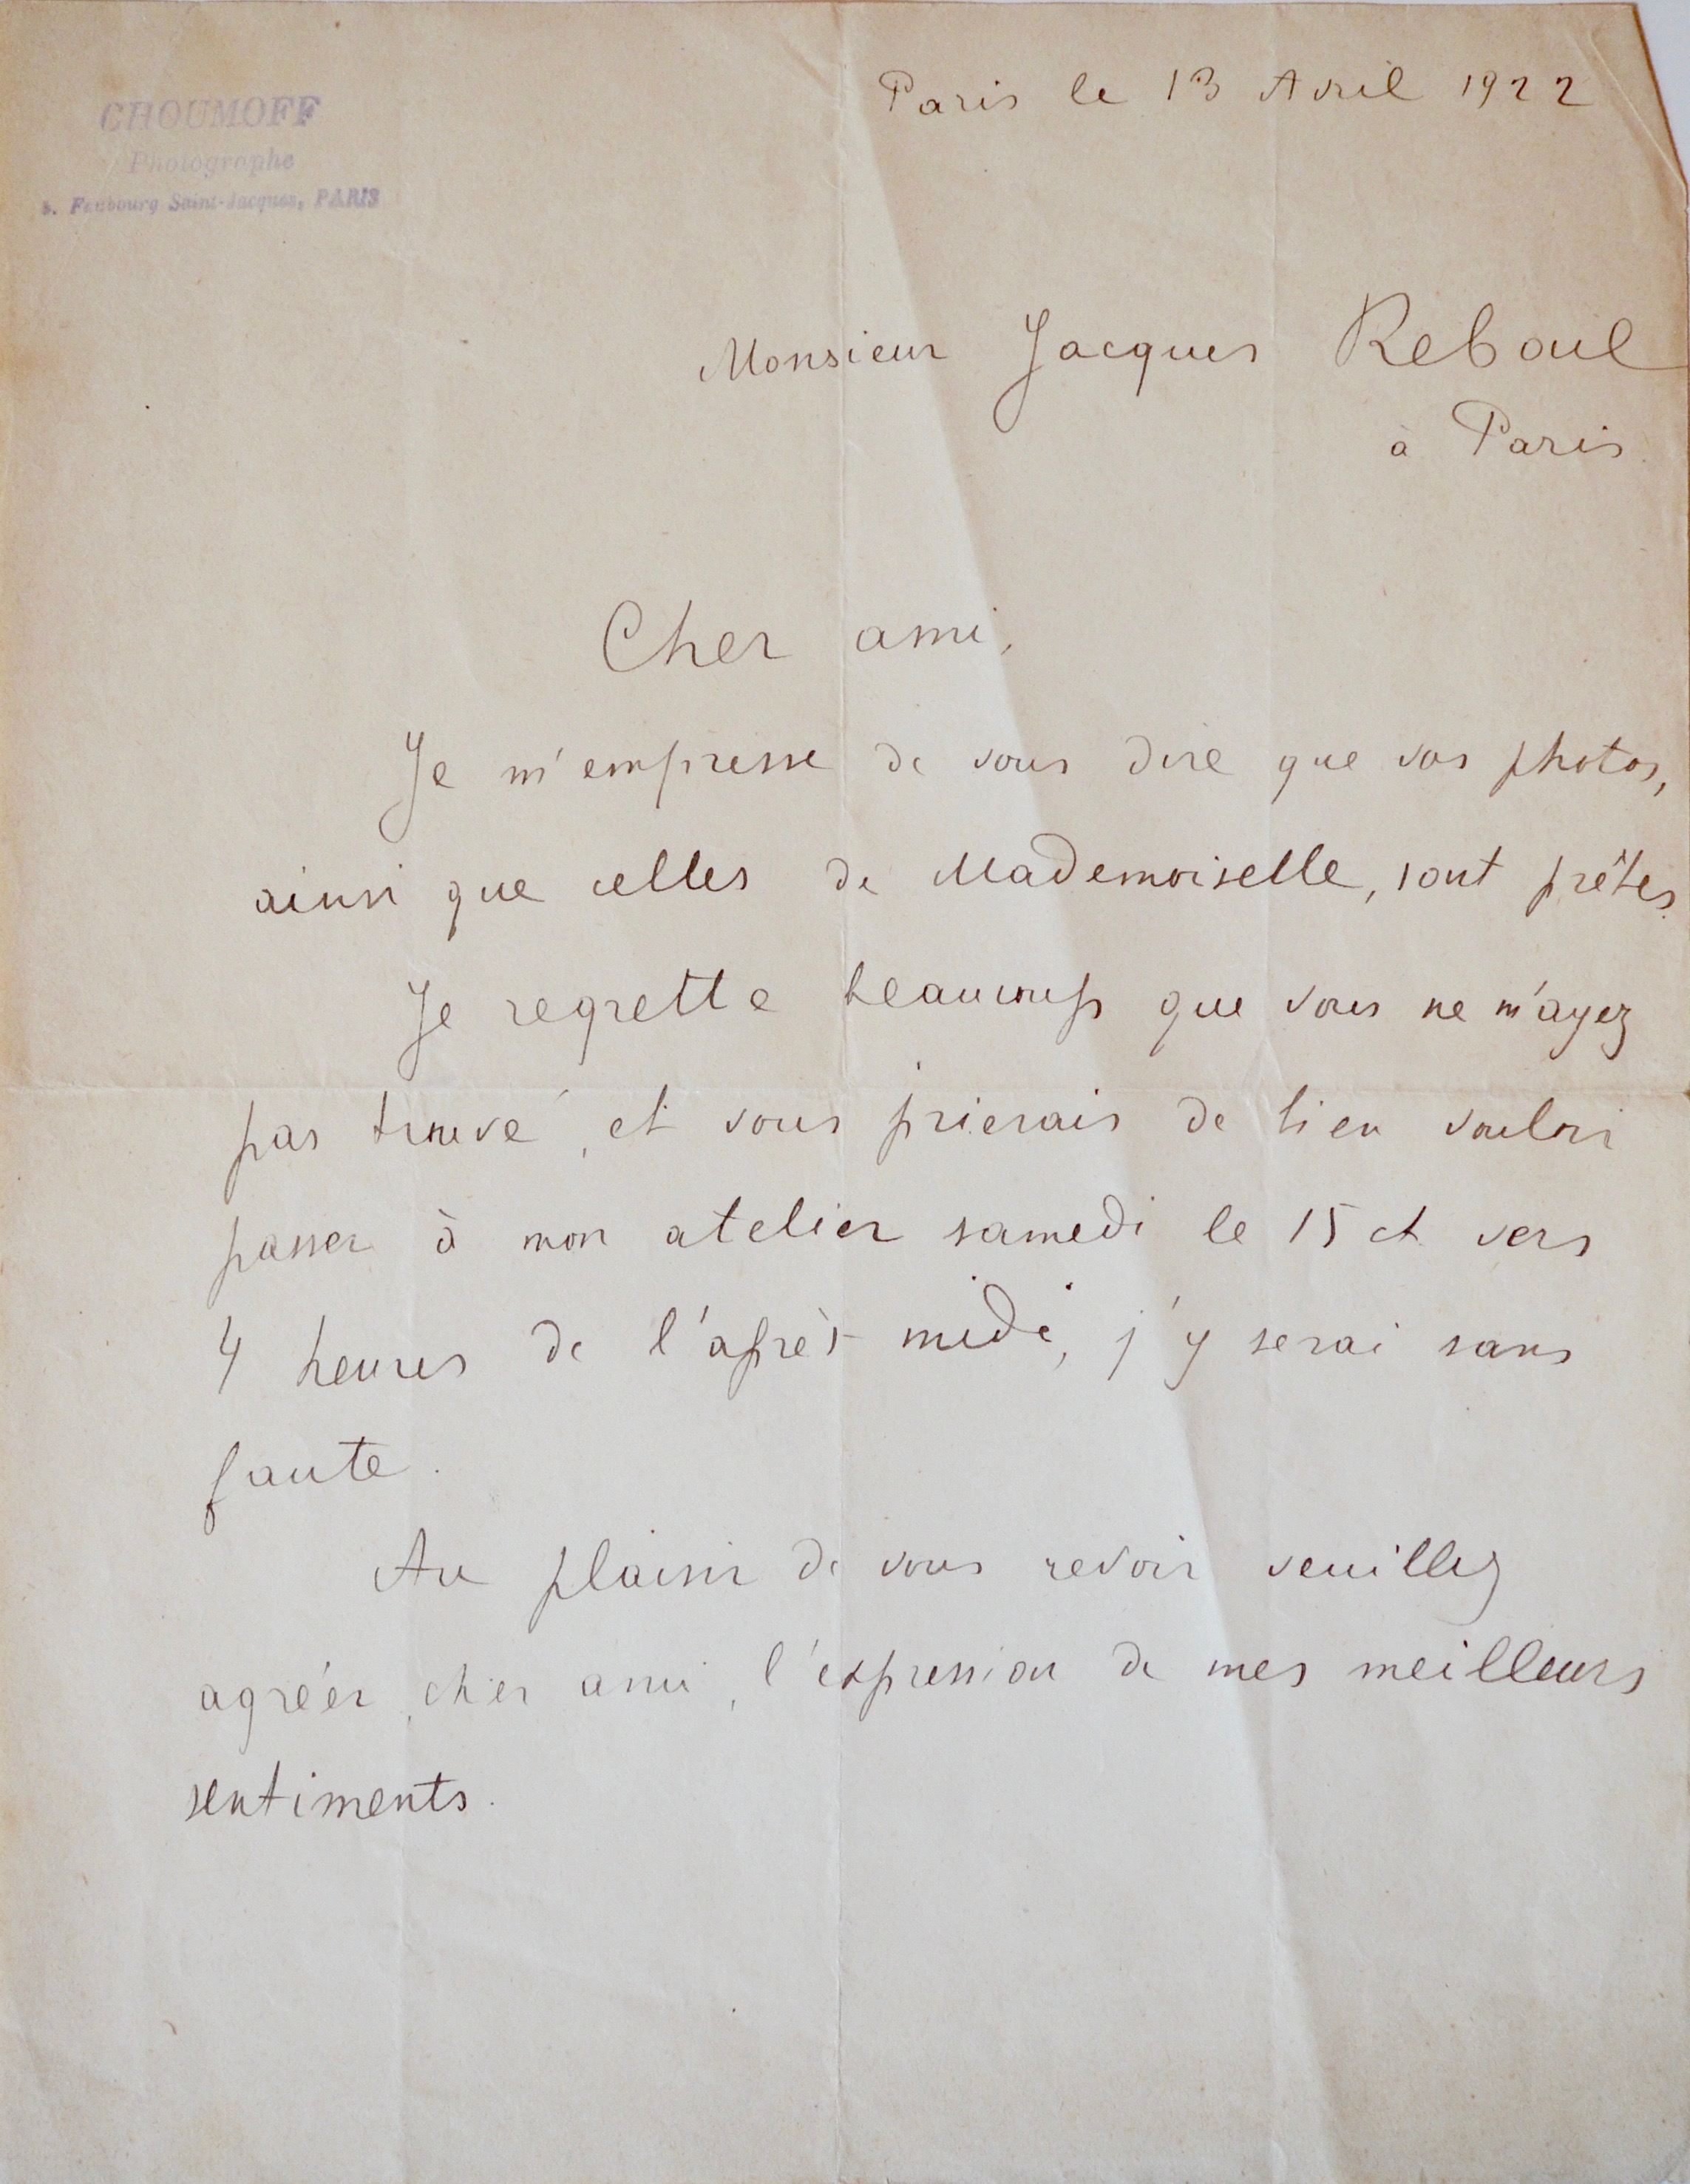 CHOUMOFF
Photographe
Faubourg Saint-Jacques, PARIS
Paris le 13 Avril 1922
Monsieur Jacques Reboul
à Paris
Cher ami,
Je m'empresse de vous dire que vos photos,
ainsi que celles de Mademoiselle, sont prêtes.
Je regrette beaucoup que vous ne m'ayez
pas trouvé, et vous prierais de bien vouloir
passer à mon atelier samedi le 15 ct vers
4 heures de l'après-midi, j'y serai sans
faute.
Au plaisir de vous revoir veuillez
agréer, cher ami, l'expression de mes meilleurs
sentiments.